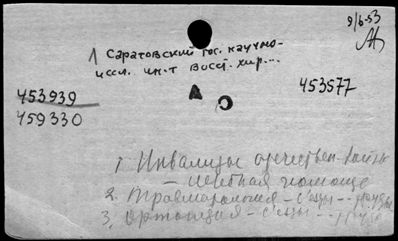 9/6-53
1 Саратовский гос. научно-
иссл. ин-т восст. хир...
453939
453577
459330
1. Инвалиды отечествен. войны
– лечебная помощь
2. Травматология – с'езды - - -
3. Ортопедия – с'езды - - -